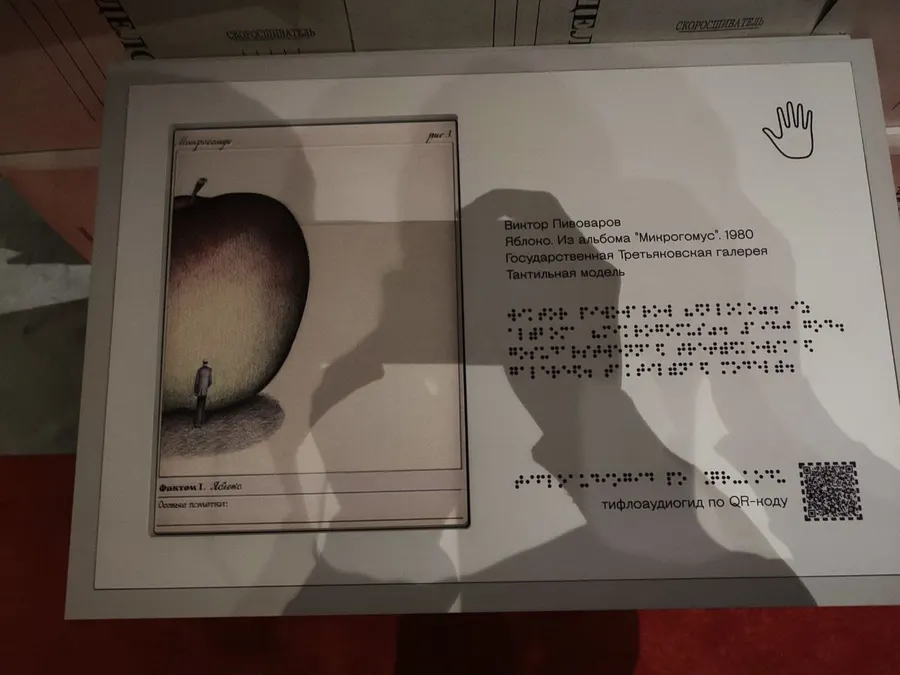 ДЕЛО
СКОРОСШИВАТЕЛЬ
СКОРОСШИВАТЕЛЬ
Микрогомус
рис 1.
Фактом I. Яблоко
Особые пометки:
Виктор Пивоваров
Яблоко. Из альбома "Микрогомус". 1980
Государственная Третьяковская галерея
Тактильная модель
тифлоаудиогид по QR-коду